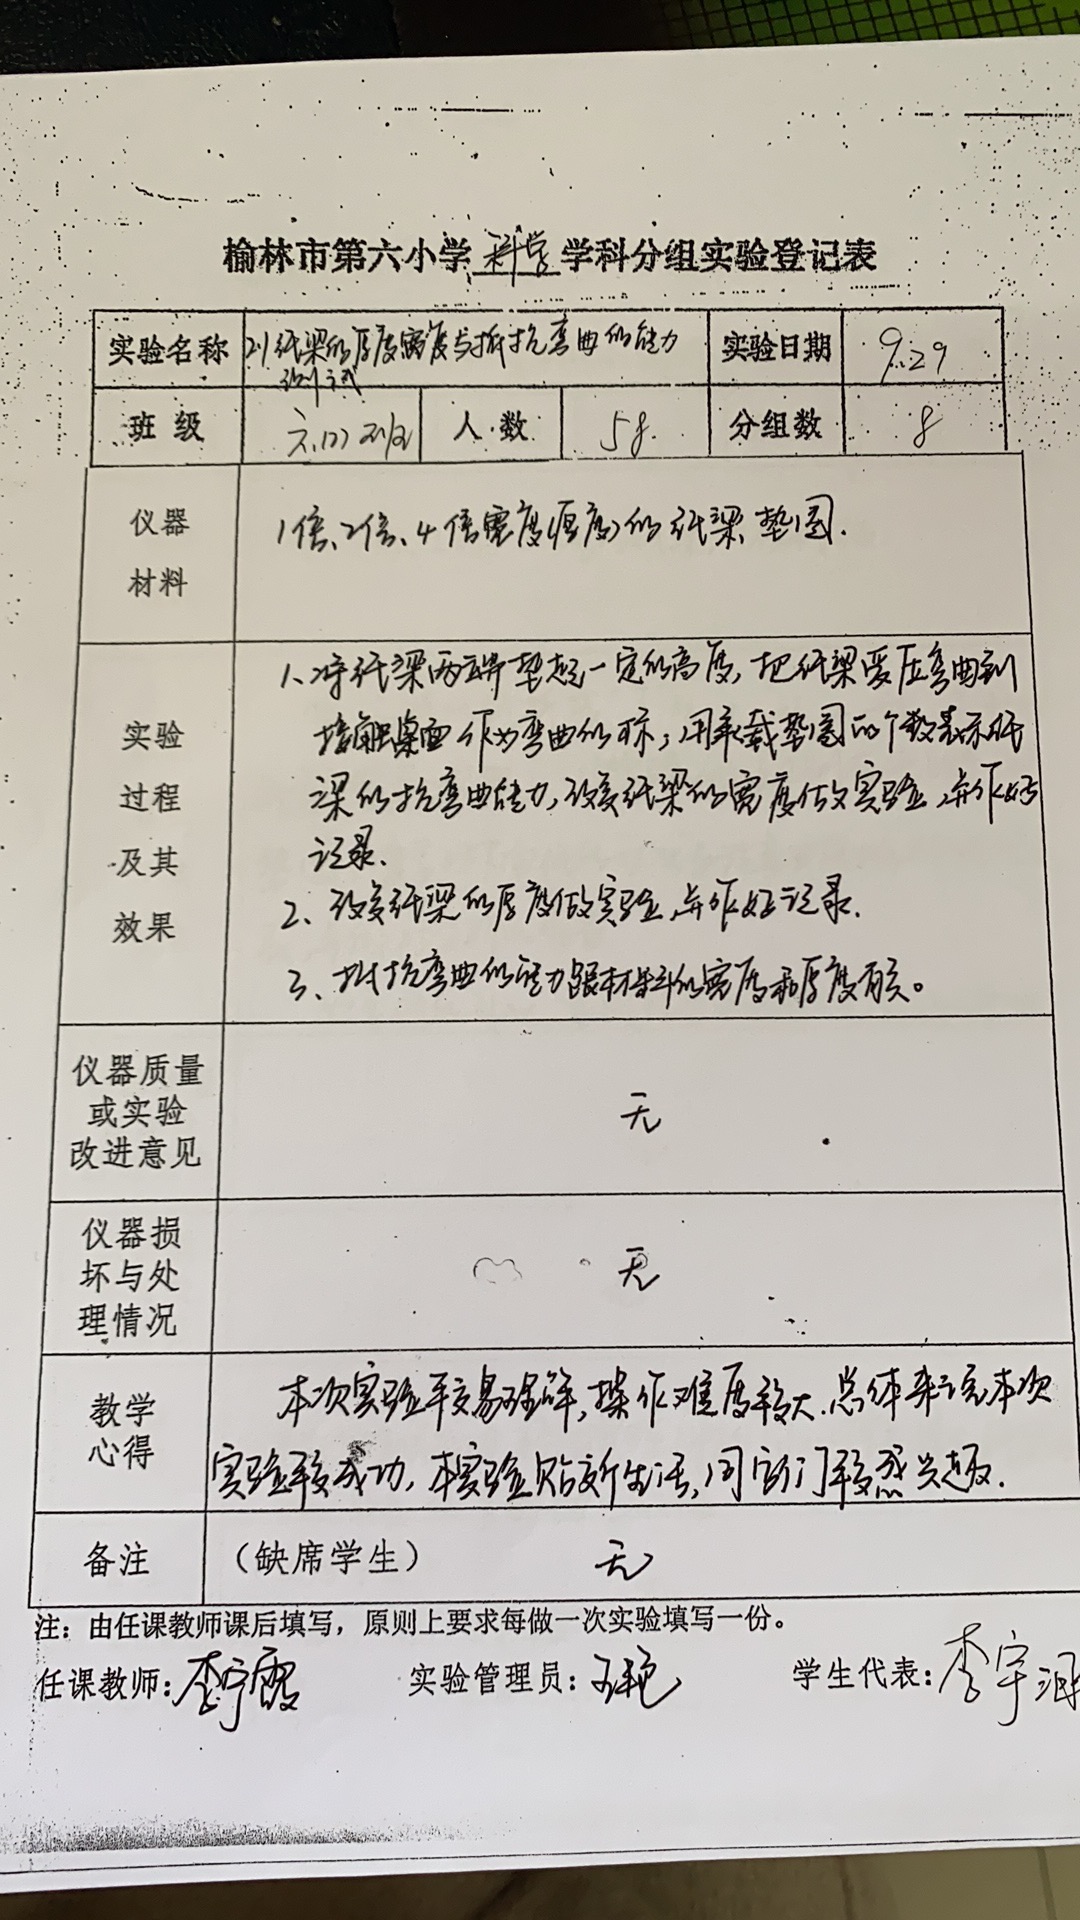 榆林市第六小学科学学科分组实验登记表
实验名称 对纸梁的厚度宽度与抵抗弯曲的能力 实验日期 9.29
测试
班级 六(1)班 人数 58. 分组数 8
仪器 1倍、2倍、4倍宽度(厚度)的纸梁 垫圈.
材料
1、将纸梁两端垫起一定的高度,把纸梁受压弯曲到
实验 接触桌面作为弯曲的标,用承载垫圈的个数表示纸
过程 梁的抗弯曲能力,改变纸梁的宽度做实验,并作好
及其 记录.
效果 2、改变纸梁的厚度做实验,并作好记录.
3、抵抗弯曲的能力跟材料的宽度和厚度有关。
仪器质量
或实验 无
改进意见
仪器损
坏与处 无
理情况
教学 本次实验较易理解,操作难度较大.总体来说本次
心得 实验较成功,本实验贴近生活,同学们较感兴趣.
备注 (缺席学生) 无
注:由任课教师课后填写,原则上要求每做一次实验填写一份。
任课教师:李宁霞 实验管理员:王艳 学生代表:李宇润